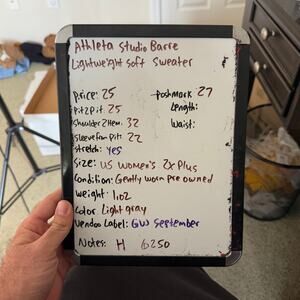 Athleta Studio Barre
Lightweight Soft Sweater
price: 25
poshmark 27
Pit2Pit 25
Length:
Shoulder 2 Hem: 32
Waist:
Sleeve from Pit: 22
Stretch: yes
Size: US Women's 2x Plus
Condition: Gently worn pre owned
Weight: 11oz
Color Light gray
Vendoo Label: GW September
Notes: H 6250